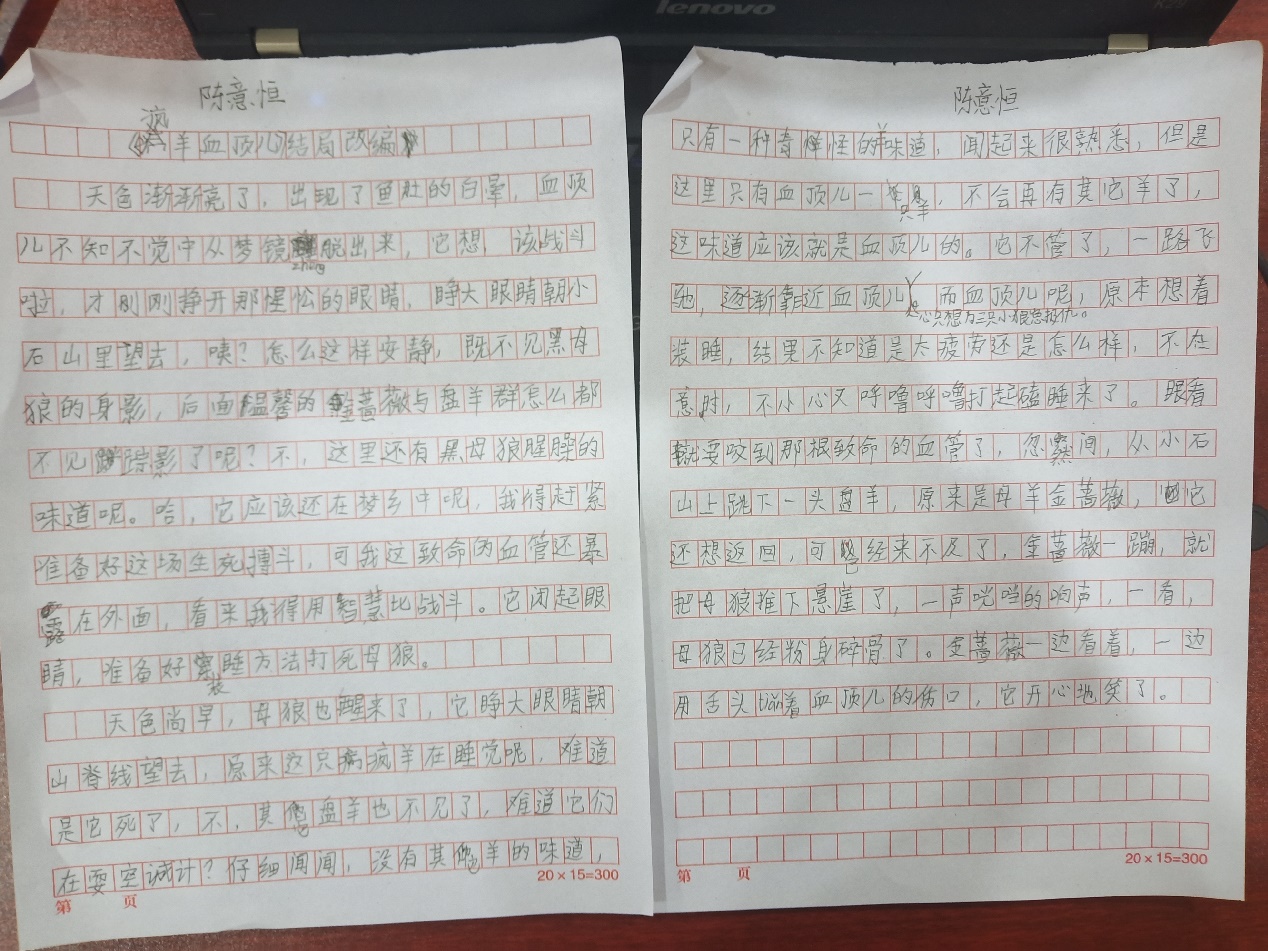 lenovo
陈意恒
疯
《羊血顶儿》结局改编
天色渐渐亮了，出现了鱼肚的白晕，血顶
儿不知不觉中从梦镜脱出来，它想，该战斗
zhēng
啦，才刚刚挣开那惺忪的眼睛，睁大眼睛朝小
石山里望去，咦？怎么这样安静，既不见黑母
狼的身影，后面温馨的金蔷薇与盘羊群怎么都
不见踪影了呢？不，这里还有黑母狼腥臊的
味道呢。哈，它应该还在梦乡中呢，我得赶紧
准备好这场生死搏斗，可我这致命的血管还暴
露在外面，看来我得用智慧比战斗。它闭起眼
睛，准备好装睡方法打死母狼。
天色尚早，母狼也醒来了，它睁大眼睛朝
山脊线望去，原来这只疯羊在睡觉呢，难道
是它死了，不，其它盘羊也不见了，难道它们
在耍空诚计？仔细闻闻，没有其它羊的味道，
20×15=300
第 页
陈意恒
只有一种奇怪的羊味道，闻起来很熟悉，但是
这里只有血顶儿一只羊，不会再有其它羊了，
这味道应该就是血顶儿的。它不管了，一路飞
驰，逐渐靠近血顶儿，而血顶儿呢，原本想着
心只想为三只小狼崽报仇。
装睡，结果不知道是太疲劳还是怎么样，不在
意时，不小心又呼噜呼噜打起磕睡来了。眼看
就要咬到那根致命的血管了，忽然间，从小石
山上跳下一头盘羊，原来是母羊金蔷薇，它
还想返回，可已经来不及了，金蔷薇一蹦，就
把母狼推下悬崖了，一声咣当的响声，一看，
母狼已经粉身碎骨了。金蔷薇一边看着，一边
用舌头舔着血顶儿的伤口，它开心地笑了。
20×15=300
第 页